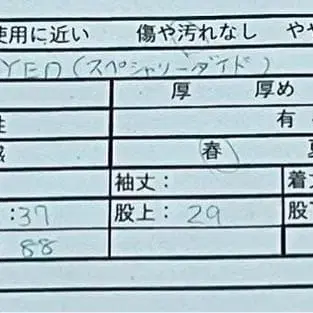 使用に近い 傷や汚れなし やや
YED(スペシャリーダイド)
厚 厚め
性 有
感 春
袖丈: 着丈
:37 股上: 29 股下
88